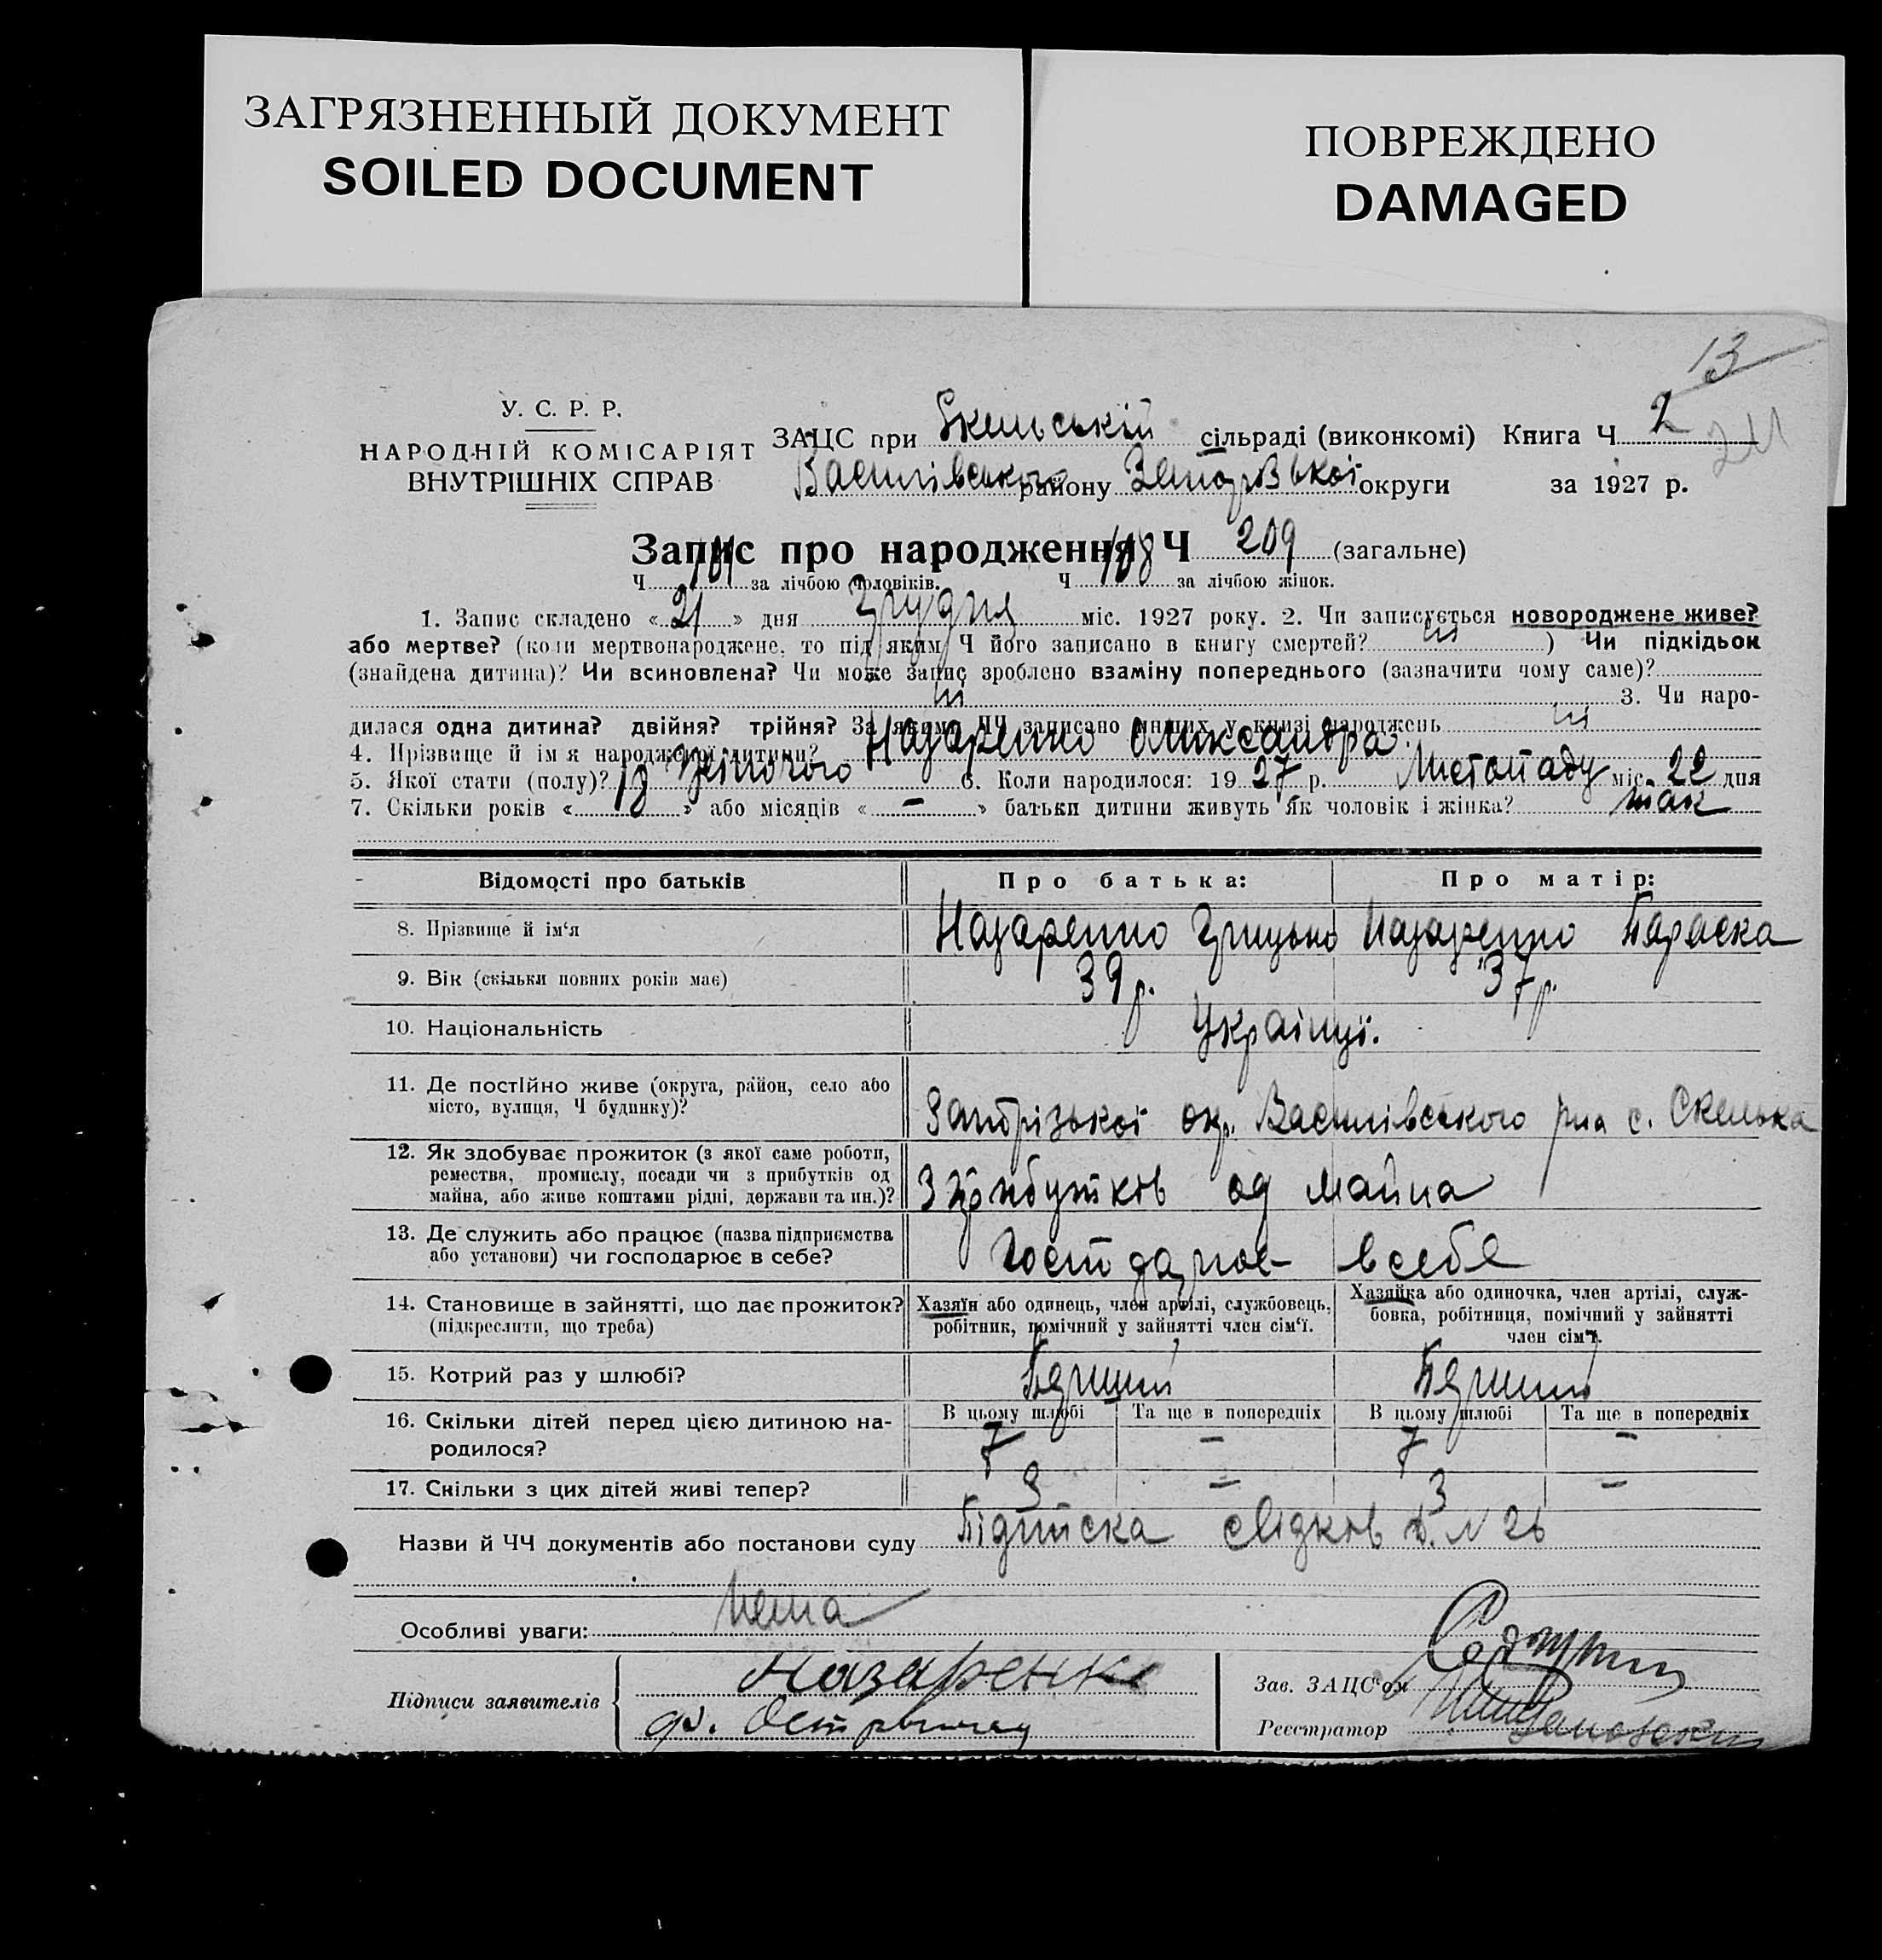 ЗАГРЯЗНЕННЫЙ ДОКУМЕНТ
SOILED DOCUMENT
ПОВРЕЖДЕНО
DAMAGED
13
2
У. С. Р. Р.
НАРОДНІЙ КОМІСАРІЯТ
ВНУТРІШНІХ СПРАВ
ЗАЦС при Скельській сільраді (виконкомі) Книга Ч
Василівського району Запорізької округи за 1927 р.
Запис про народження Ч 209 (загальне)
Ч 101 за лічбою чоловіків. Ч 108 за лічбою жінок.
1. Запис складено « 21 » дня Грудня міс. 1927 року. 2. Чи записується новороджене живе?
або мертве? (коли мертвонароджене, то під яким Ч його записано в книгу смертей? ні ) Чи підкідьок
(знайдена дитина)? Чи всиновлена? Чи може запис зроблено взаміну попереднього (зазначити чому саме)?
ні 3. Чи наро-
дилася одна дитина? двійня? трійня? За якими ЧЧ записано инших у книзі народжень ні
4. Прізвище й ім'я народженої дитини? Назаренко Олександра.
5. Якої стати (полу)? Жіночого 6. Коли народилося: 19 27 р. Листопаду міс. 22 дня
7. Скільки років « 18 » або місяців « – » батьки дитини живуть як чоловік і жінка? так
Відомості про батьків Про батька: Про матір:
8. Прізвище й ім'я Назаренко Грицько Назаренко Параска
9. Вік (скільки повних років має) 39 р. 37 р.
10. Національність Українці.
11. Де постійно живе (округа, район, село або
місто, вулиця, Ч будинку)? Запорізької окр. Василівського р-на с. Скелька
12. Як здобуває прожиток (з якої саме роботи,
ремества, промислу, посади чи з прибутків од
майна, або живе коштами рідні, держави та ин.)? З прибутків од майна
13. Де служить або працює (назва підприємства
або установи) чи господарює в себе? Господарює в себе
14. Становище в зайнятті, що дає прожиток?
(підкреслити, що треба)
Хазяїн або одинець, член артілі, службовець,
робітник, помічний у зайнятті член сім'ї.
Хазяйка або одиночка, член артілі, служ-
бовка, робітниця, помічний у зайнятті
член сім'ї.
15. Котрий раз у шлюбі? Перший Перший
16. Скільки дітей перед цією дитиною на-
родилося?
В цьому шлюбі Та ще в попередніх В цьому шлюбі Та ще в попередніх
7 – 7 –
17. Скільки з цих дітей живі тепер? 3 – 3 –
Назви й ЧЧ документів або постанови суду Підписка свідків Д. N 26
Особливі уваги: Нема
Підписи заявителів Назаренко
Зав. ЗАЦС'ом
Реєстратор